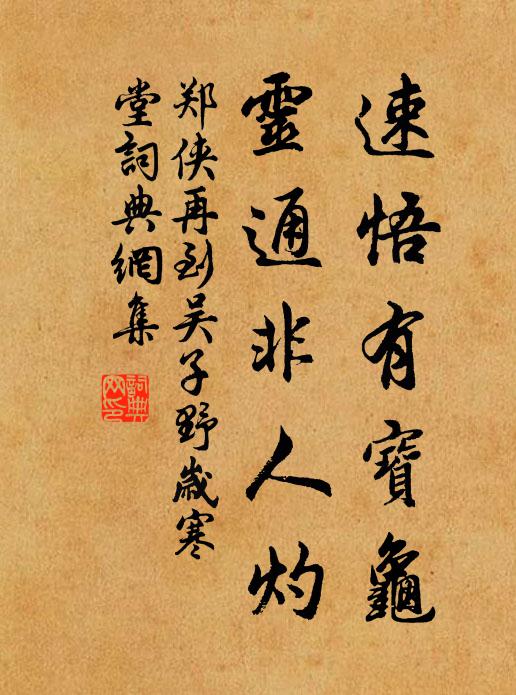 速悟有寶龜
靈通非人灼
郑侠再到吴子野歲寒
堂詞典網集
詞典网印